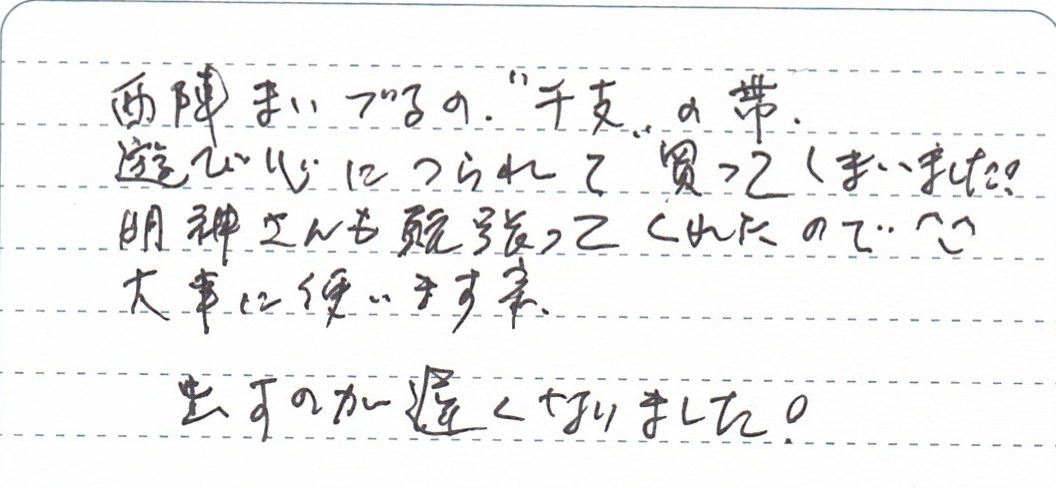 西陣まいづるの、〝干支〟の帯、
遊び心につられて買ってしまいました!
明神さんも頑張ってくれたので‥^^
大事に使いますネ、
出すのが遅くなりました!